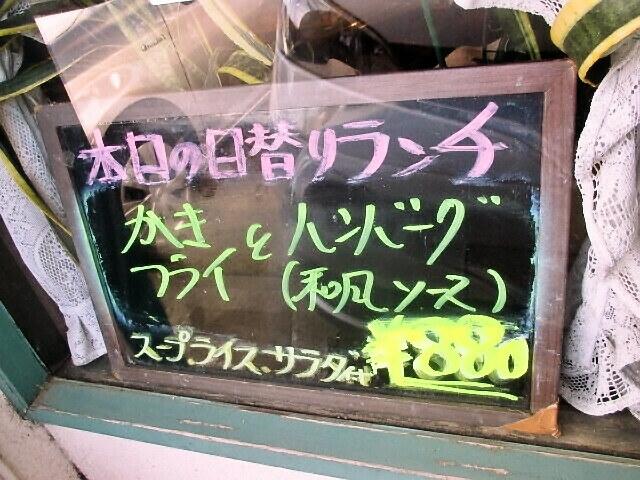 本日の日替りランチ
かきフライ と ハンバーグ
(和風ソース)
スープ.ライス、サラダ付 ¥880